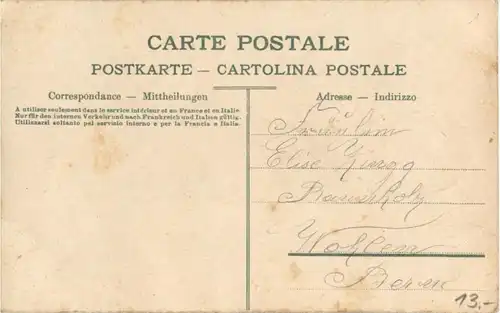 CARTE POSTALE
POSTKARTE — CARTOLINA POSTALE
Correspondance — Mittheilungen
A utiliser seulement dans le service intérieur et en France et en Italie.
Nur für den internen Verkehr und nach Frankreich und Italien gültig.
Utilizzarsi soltanto pel servizio interno e per la Francia e Italia.
Adresse — Indirizzo
Fräulein
Elise
Wohlen
Bern
13.-